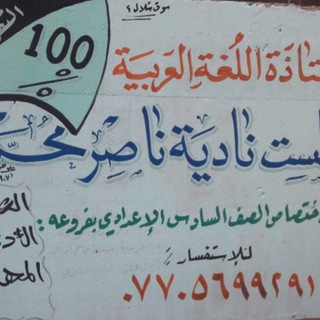 100 %
تاذة اللغة العربية
لست نادية ناصر مح
ختصاص الصف السادس الإعدادي بفروعه :
للاستفسار /
٠٧٧٠٥٦٩٩٢٩١